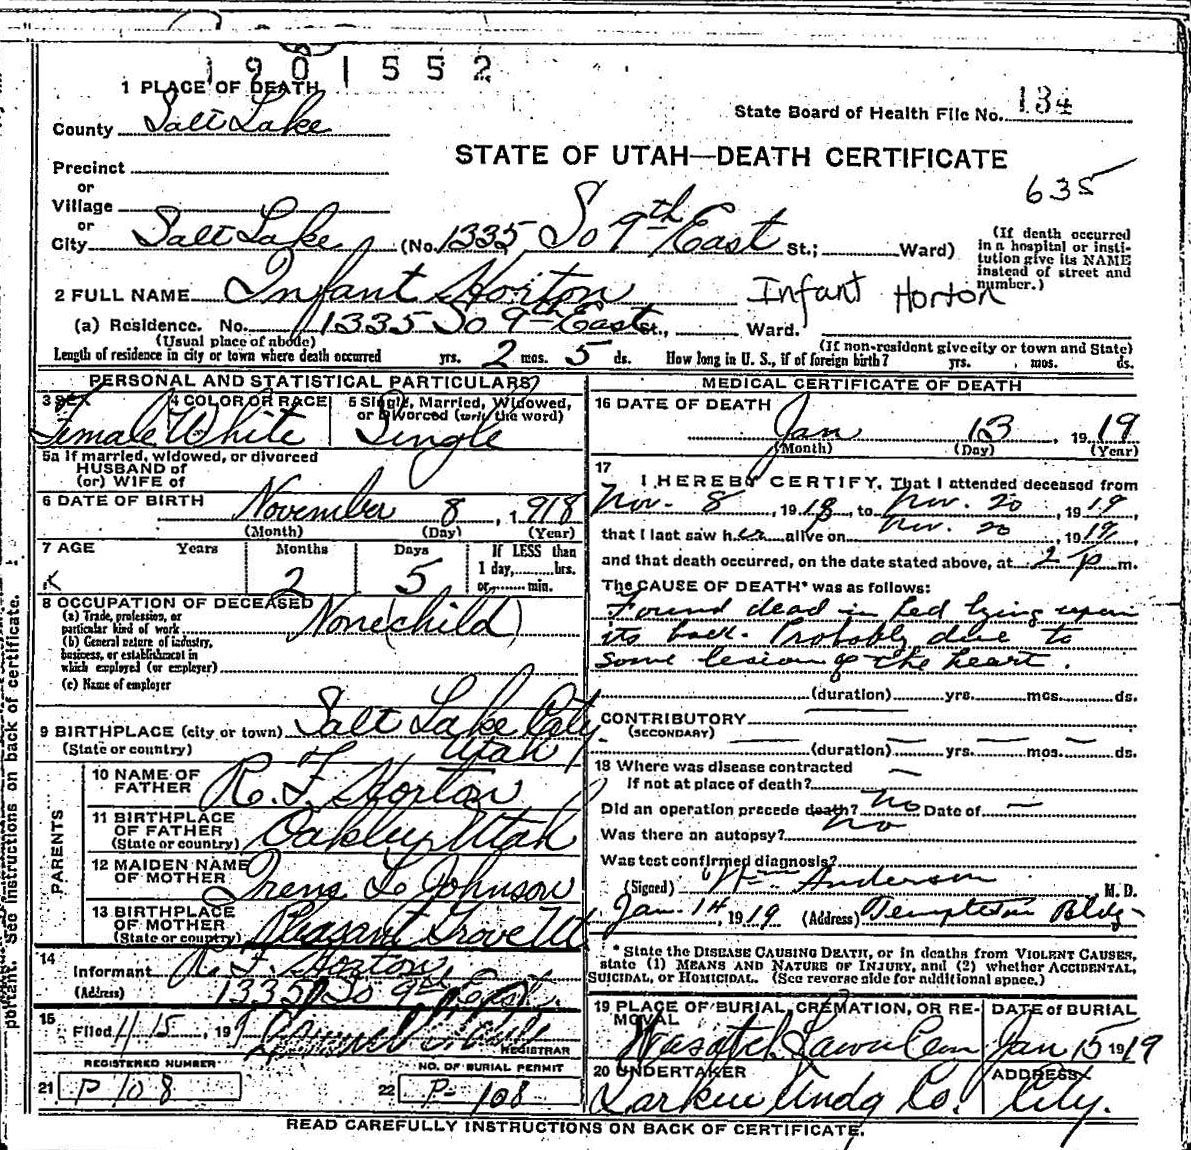 1901552
1 PLACE OF DEATH
State Board of Health File No. 134
County Salt Lake
STATE OF UTAH—DEATH CERTIFICATE
635
Precinct
or
Village
or
City Salt Lake (No. 1335 So 9th East St.; Ward)
(If death occurred in a hospital or insti-
tution give its NAME
instead of street and
number.)
2 FULL NAME Infant Horton Infant Horton
(a) Residence. No. 1335 So 9th East St., Ward.
(Usual place of abode) (If non-resident give city or town and State)
Length of residence in city or town where death occurred yrs. 2 mos. 5 ds. How long in U. S., if of foreign birth? yrs. mos. ds.
PERSONAL AND STATISTICAL PARTICULARS
3 SEX 4 COLOR OR RACE 5 Single, Married, Widowed,
or Divorced (write the word)
Female White Single
5a If married, widowed, or divorced
HUSBAND of
(or) WIFE of
6 DATE OF BIRTH November 8, 1918
(Month) (Day) (Year)
7 AGE Years Months Days If LESS than
1 day, hrs.
or, min.
2 5
8 OCCUPATION OF DECEASED
(a) Trade, profession, or
particular kind of work None (child)
(b) General nature of industry,
business, or establishment in
which employed (or employer)
(c) Name of employer
9 BIRTHPLACE (city or town) Salt Lake City
(State or country) Utah
PARENTS
10 NAME OF
FATHER R. F. Horton
11 BIRTHPLACE
OF FATHER
(State or country) Oakley Utah
12 MAIDEN NAME
OF MOTHER Irene L. Johnson
13 BIRTHPLACE
OF MOTHER
(State or country) Pleasant Grove Ut
14
Informant R. F. Horton
(Address) 1335 So 9th East
15
Filed 1/15, 191
REGISTRAR
REGISTERED NUMBER NO. OF BURIAL PERMIT
21 P 108 22 P-108
MEDICAL CERTIFICATE OF DEATH
16 DATE OF DEATH
Jan 13, 1919
(Month) (Day) (Year)
17
I HEREBY CERTIFY, That I attended deceased from
Nov. 8, 1918, to Nov. 20, 1919
that I last saw her alive on Nov. 20, 191
and that death occurred, on the date stated above, at 2 p m.
The CAUSE OF DEATH* was as follows:
Found dead in bed lying upon
its back. Probably due to
some lesion of the heart.
(duration) yrs. mos. ds.
CONTRIBUTORY
(SECONDARY)
(duration) yrs. mos. ds.
18 Where was disease contracted
If not at place of death?
Did an operation precede death? no Date of —
Was there an autopsy? no
Was test confirmed diagnosis?
(Signed) Wm Anderson M. D.
Jan. 14, 1919 (Address) Templeton Bldg
* State the DISEASE CAUSING DEATH, or in deaths from VIOLENT CAUSES,
state (1) MEANS AND NATURE OF INJURY, and (2) whether ACCIDENTAL,
SUICIDAL, or HOMICIDAL. (See reverse side for additional space.)
19 PLACE OF BURIAL, CREMATION, OR RE-
MOVAL DATE of BURIAL
Wasatch Lawn Cem Jan 15 1919
20 UNDERTAKER ADDRESS
Larkin Undg Co. City.
READ CAREFULLY INSTRUCTIONS ON BACK OF CERTIFICATE.
See instructions on back of certificate.